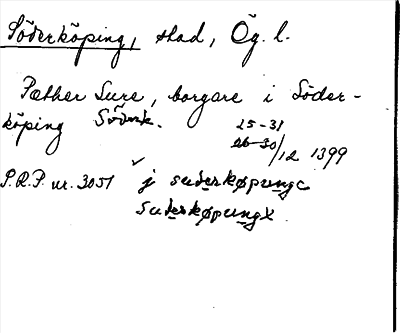 Söderköping, stad, Ög. l.
Pæther Sure, borgare i Söder-
köping Söderk.
25-31
26-30/12 1399
P.R.P. nr. 3051 j suderkøpungc
Suderkøpungx